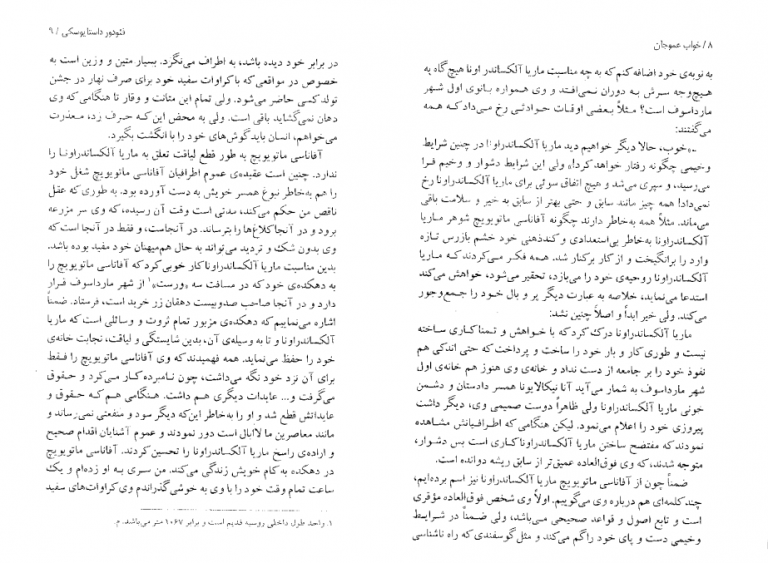 ۸ / خواب عموجان
به نوبه‌ی خود اضافه کنم که به چه مناسبت ماریا آلکساندر اونا هیچ‌گاه به
هیچ‌وجه سرش به دوران نمی‌افتد و وی همواره بانوی اول شهر
مارداسوف است؟ مثلاً بعضی اوقات حوادثی رخ می‌داد که همه
می‌گفتند:
«خوب، حالا دیگر خواهیم دید ماریا آلکساندراونا در چنین شرایط
وخیمی چگونه رفتار خواهد کرد!» ولی این شرایط دشوار و وخیم فرا
می‌رسید، و سپری می‌شد و هیچ اتفاق سوئی برای ماریا آلکساندراونا رخ
نمی‌داد! همه چیز مانند سابق و حتی بهتر از سابق به خیر و سلامت باقی
می‌ماند. مثلاً همه به‌خاطر دارند چگونه آفاناسی ماتویویچ شوهر ماریا
آلکساندراونا به‌خاطر بی‌استعدادی و کندذهنی خود خشم بازرس تازه
وارد را برانگیخت و از کار برکنار شد. همه فکر می‌کردند که ماریا
آلکساندراونا روحیه‌ی خود را می‌بازد، تحقیر می‌شود، خواهش می‌کند
استدعا می‌نماید، خلاصه به عبارت دیگر پر و بال خود را جمع‌وجور
می‌کند. ولی خیر ابداً و اصلاً چنین نشد:
ماریا آلکساندراونا درک کرد که با خواهش و تمنا کاری ساخته
نیست و طوری کار و بار خود را ساخت و پرداخت که حتی اندکی هم
نفوذ خود را بر جامعه از دست نداد و خانه‌ی وی هنوز هم خانه‌ی اول
شهر مارداسوف به شمار می‌آید آنا نیکالایونا همسر دادستان و دشمن
خونی ماریا آلکساندراونا ولی ظاهراً دوست صمیمی وی، دیگر داشت
پیروزی خود را اعلام می‌نمود. لیکن هنگامی که اطرافیانش مشاهده
نمودند که مفتضح ساختن ماریا آلکساندراونا کاری است بس دشوار،
متوجه شدند، که وی فوق‌العاده عمیق‌تر از سابق ریشه دوانده است.
ضمناً چون از آفاناسی ماتویویچ ماریا آلکساندراونا نیز اسم برده‌ایم،
چند کلمه‌ای هم درباره وی می‌گوییم. اولاً وی شخص فوق‌العاده مؤقری
است و تابع اصول و قواعد صحیحی می‌باشد، ولی ضمناً در شرایط
وخیمی دست و پای خود را گم می‌کند و مثل گوسفندی که راه ناشناسی
فئودور داستایوسکی / ۹
در برابر خود دیده باشد، به اطراف می‌نگرد. بسیار متین و وزین است به
خصوص در مواقعی که با کراوات سفید خود برای صرف نهار در جشن
تولد کسی حاضر می‌شود. ولی تمام این متانت و وقار تا هنگامی که وی
دهان نمی‌گشاید باقی است. ولی به محض این که حرف زد، معذرت
می‌خواهم، انسان باید گوش‌های خود را با انگشت بگیرد.
آفاناسی ماتویویچ به طور قطع لیاقت تعلق به ماریا آلکساندراونا را
ندارد. چنین است عقیده‌ی عموم اطرافیان آفاناسی ماتویویچ شغل خود
را هم به‌خاطر نبوغ همسر خویش به دست آورده بود. به طوری که عقل
ناقص من حکم می‌کند، مدتی است وقت آن رسیده، که وی سر مزرعه
برود و در آنجا کلاغ‌ها را بترساند. در آنجاست، و فقط در آنجا است که
وی بدون شک و تردید می‌تواند به حال هم‌میهنان خود مفید بوده باشد.
بدین مناسبت ماریا آلکساندراونا کار خوبی کرد که آفاناسی ماتویویچ را
به دهکده‌ی خود که در مسافت سه «ورست»۱ از شهر مارداسوف قرار
دارد و در آنجا صاحب صدوبیست دهقان زر خرید است، فرستاد. ضمناً
اشاره می‌نماییم که دهکده‌ی مزبور تمام ثروت و وسائلی است که ماریا
آلکساندراونا و تا به وسیله‌ی آن، بدین شایستگی و لیاقت، نجابت خانه‌ی
خود را حفظ می‌نماید. همه فهمیدند که وی آفاناسی ماتویویچ را فقط
برای آن نزد خود نگه می‌داشت، چون نامبرده کار می‌کرد و حقوق
می‌گرفت و... عایدات دیگری هم داشت. هنگامی هم که حقوق و
عایداتش قطع شد و او را به‌خاطر این‌که دیگر سود و منفعتی نمی‌رساند و
مانند معاصرین ما لاابال است دور نمودند و عموم آشنایان اقدام صحیح
و اراده‌ی راسخ ماریا آلکساندراونا را تحسین کردند. آفاناسی ماتویویچ
در دهکده به کام خویش زندگی می‌کند. من سری به او زده‌ام و یک
ساعت تمام وقت خود را با وی به خوشی گذراندم وی کراوات‌های سفید
۱. واحد طول داخلی روسیه قدیم است و برابر ۱۰۶۷ متر می‌باشد. م.